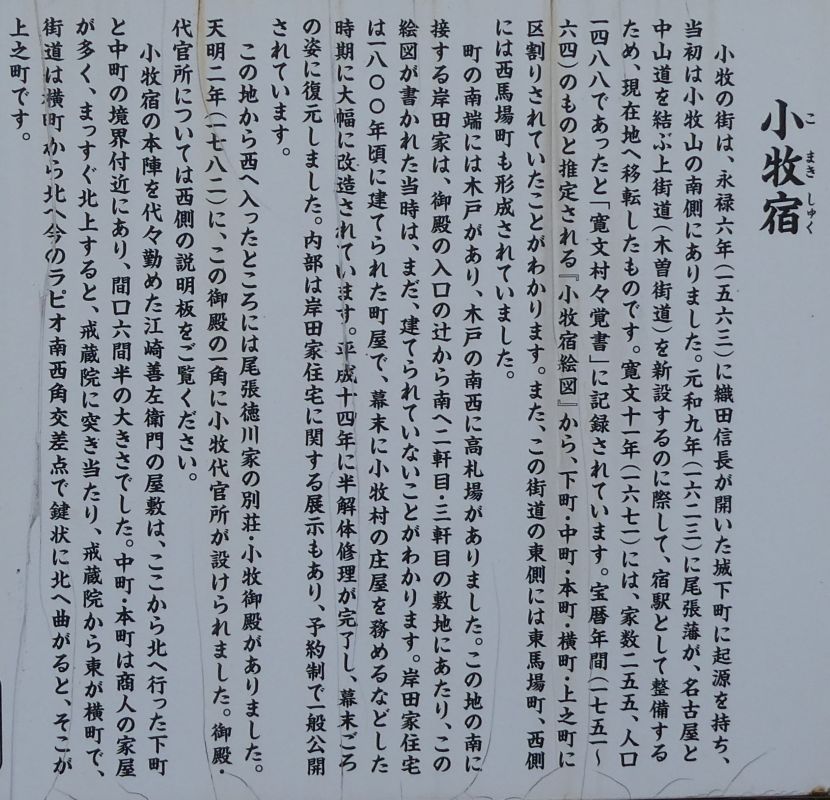 小牧宿
こまきしゅく
小牧の街は、永禄六年(一五六三)に織田信長が開いた城下町に起源を持ち、
当初は小牧山の南側にありました。元和九年(一六二三)に尾張藩が、名古屋と
中山道を結ぶ上街道(木曽街道)を新設するのに際して、宿駅として整備する
ため、現在地へ移転したものです。寛文十一年(一六七一)には、家数二五五、人口
一四八八であったと「寛文村々覚書」に記録されています。宝暦年間(一七五一～
六四)のものと推定される『小牧宿絵図』から、下町・中町・本町・横町・上之町に
区割りされていたことがわかります。また、この街道の東側には東馬場町、西側
には西馬場町も形成されていました。
町の南端には木戸があり、木戸の南西に高札場がありました。この地の南に
接する岸田家は、御殿の入口の辻から南へ二軒目・三軒目の敷地にあたり、この
絵図が書かれた当時は、まだ、建てられていないことがわかります。岸田家住宅
は一八〇〇年頃に建てられた町屋で、幕末に小牧村の庄屋を務めるなどした
時期に大幅に改造されています。平成十四年に半解体修理が完了し、幕末ごろ
の姿に復元しました。内部は岸田家住宅に関する展示もあり、予約制で一般公開
されています。
この地から西へ入ったところには尾張徳川家の別荘・小牧御殿がありました。
天明二年(一七八二)に、この御殿の一角に小牧代官所が設けられました。御殿・
代官所については西側の説明板をご覧ください。
小牧宿の本陣を代々勤めた江崎善左衛門の屋敷は、ここから北へ行った下町
と中町の境界付近にあり、間口六間半の大きさでした。中町・本町は商人の家屋
が多く、まっすぐ北上すると、戒蔵院に突き当たり、戒蔵院から東が横町で、
街道は横町から北へ今のラピオ南西角交差点で鍵状に北へ曲がると、そこが
上之町です。